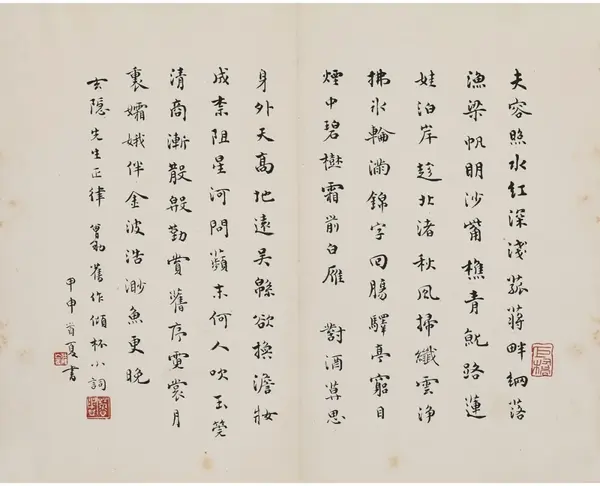 夫容照水紅深淺菰蔣畔網落
漁梁帆明沙觜樵青路蓮
娃泊岸趁北渚秋風掃纖雲淨
拂冰輪滿錦字回腸驛亭窮目
煙中碧樹霜前白雁 對酒莫思
身外天高地遠吳緜欲換澹妝
成素阻星河問蘋末何人吹玉筦
清商漸散殷勤賞舊序霓裳月
裏孀娥伴金波浩渺魚更晚
玄隱先生正律 曾劬舊作傾杯小詞
甲申首夏書